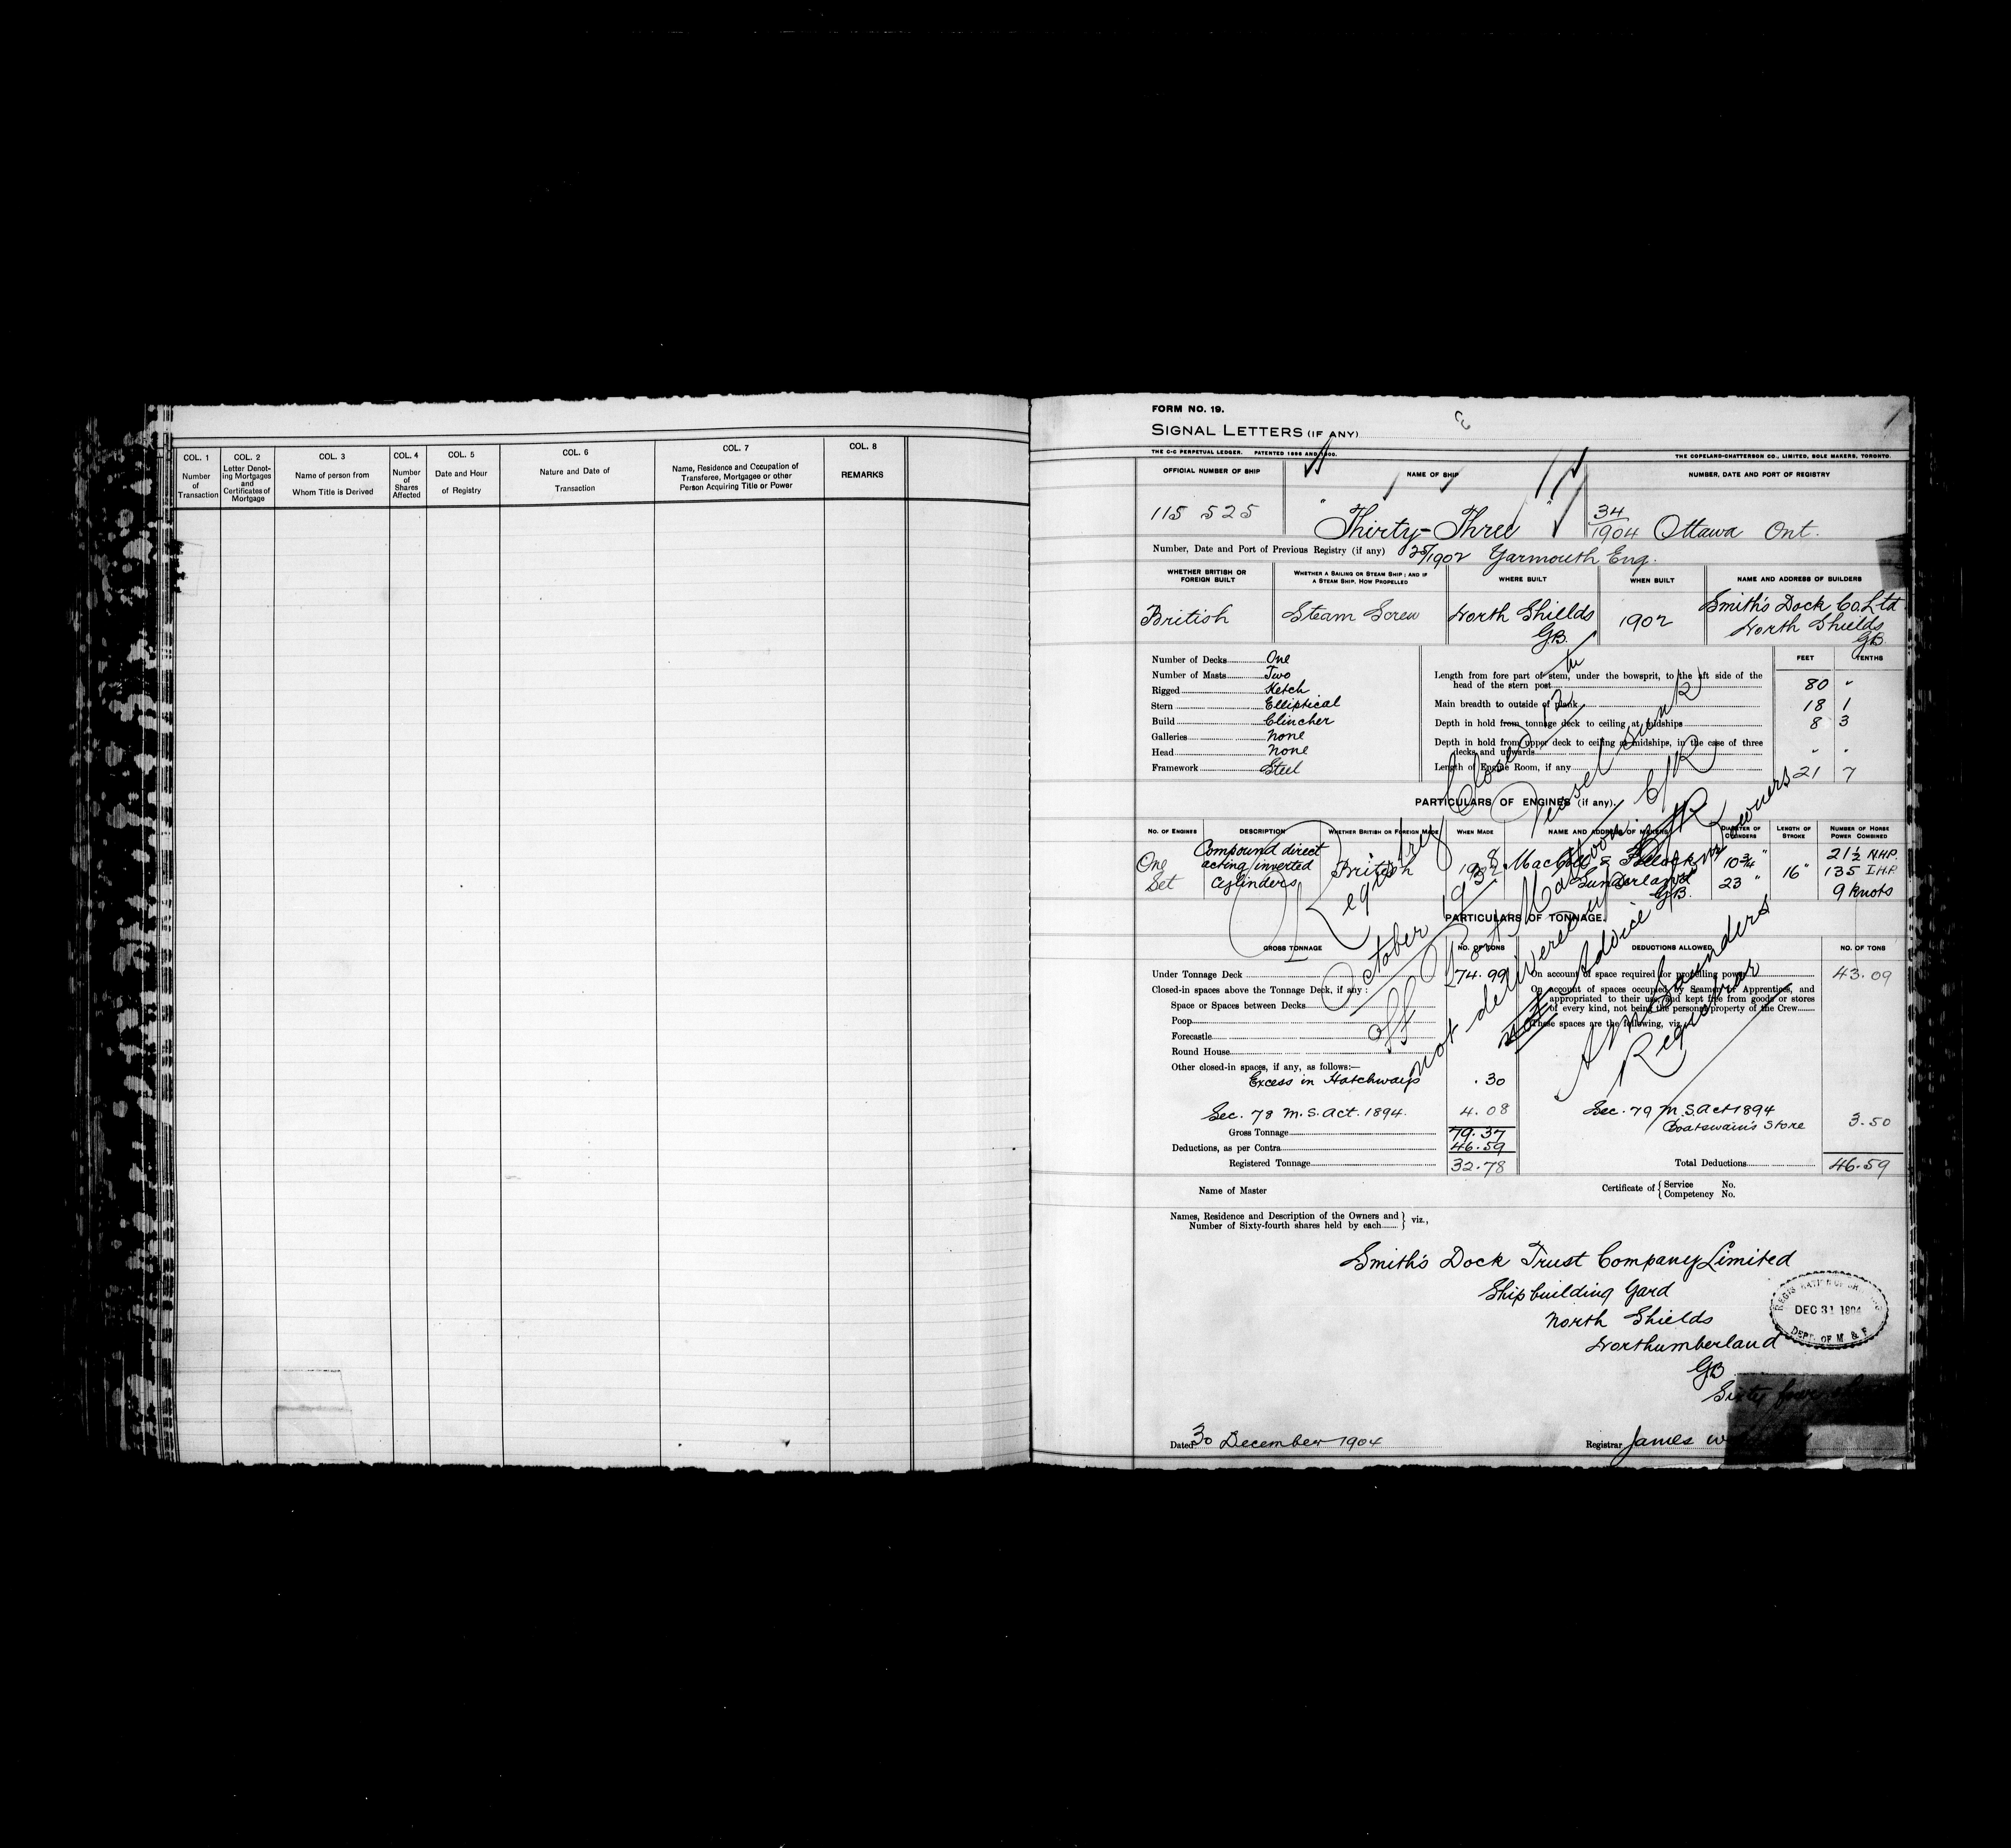 COL. 1
Number
of
Transaction
COL. 2
Letter Denot-
ing Mortgages
and
Certificates of
Mortgage
COL. 3
Name of person from
Whom Title is Derived
COL. 4
Number
of
Shares
Affected
COL. 5
Date and Hour
of Registry
COL. 6
Nature and Date of
Transaction
COL. 7
Name, Residence and Occupation of
Transferee, Mortgagee or other
Person Acquiring Title or Power
COL. 8
REMARKS
FORM NO. 19.
SIGNAL LETTERS (IF ANY)
THE C-C PERPETUAL LEDGER. PATENTED 1896 AND 1900.
THE COPELAND-CHATTERSON CO., LIMITED, SOLE MAKERS, TORONTO.
OFFICIAL NUMBER OF SHIP
NAME OF SHIP
NUMBER, DATE AND PORT OF REGISTRY
115 525
"Thirty-Three"
34
1904 Ottawa Ont.
Number, Date and Port of Previous Registry (if any) 25/1902 Yarmouth Eng.
WHETHER BRITISH OR
FOREIGN BUILT
WHETHER A SAILING OR STEAM SHIP; AND IF
A STEAM SHIP, HOW PROPELLED
WHERE BUILT
WHEN BUILT
NAME AND ADDRESS OF BUILDERS
British
Steam Screw
North Shields
GB.
1902
Smith's Dock Co. Ltd
North Shields
GB.
Number of Decks One
Number of Masts Two
Rigged Ketch
Stern Elliptical
Build Clincher
Galleries None
Head None
Framework Steel
FEET TENTHS
Length from fore part of stem, under the bowsprit, to the aft side of the
head of the stern post 80 "
Main breadth to outside of plank 18 1
Depth in hold from tonnage deck to ceiling at midships 8 3
Depth in hold from upper deck to ceiling at midships, in the case of three
decks and upwards " "
Length of Engine Room, if any 21 7
PARTICULARS OF ENGINES (if any).
NO. OF ENGINES
DESCRIPTION
WHETHER BRITISH OR FOREIGN MADE
WHEN MADE
NAME AND ADDRESS OF MAKERS
DIAMETER OF
CYLINDERS
LENGTH OF
STROKE
NUMBER OF HORSE
POWER COMBINED
One
Set
Compound direct
acting inverted
Cylinders
British
1902
MacColl & Pollock
Sunderland
GB.
10¾"
23 "
16"
21½ N.H.P.
135 I.H.P.
9 knots
PARTICULARS OF TONNAGE.
GROSS TONNAGE
NO. OF TONS
DEDUCTIONS ALLOWED
NO. OF TONS
Under Tonnage Deck 74.99
Closed-in spaces above the Tonnage Deck, if any:
Space or Spaces between Decks
Poop
Forecastle
Round House
Other closed-in spaces, if any, as follows:—
Excess in Hatchways .30
Sec. 78 M.S. Act. 1894. 4.08
Gross Tonnage 79.37
Deductions, as per Contra 46.59
Registered Tonnage 32.78
On account of space required for propelling power 43.09
On account of spaces occupied by Seamen or Apprentices, and
appropriated to their use, and kept free from goods or stores
of every kind, not being the personal property of the Crew
These spaces are the following, viz.
Sec. 79 M.S. Act 1894
Boatswain's Store 3.50
Total Deductions 46.59
Registry Closed
October
Vessel sunk
off Port Mattoon
not delivered up
Advice from owners
Saunders
Registrar
Name of Master
Certificate of { Service No.
Competency No.
Names, Residence and Description of the Owners and
Number of Sixty-fourth shares held by each } viz.,
Smith's Dock Trust Company Limited
Shipbuilding Yard
North Shields
Northumberland
GB
Sixty four
DEC 31 1904
DEPT. OF M & F
Dated 30 December 1904
Registrar James